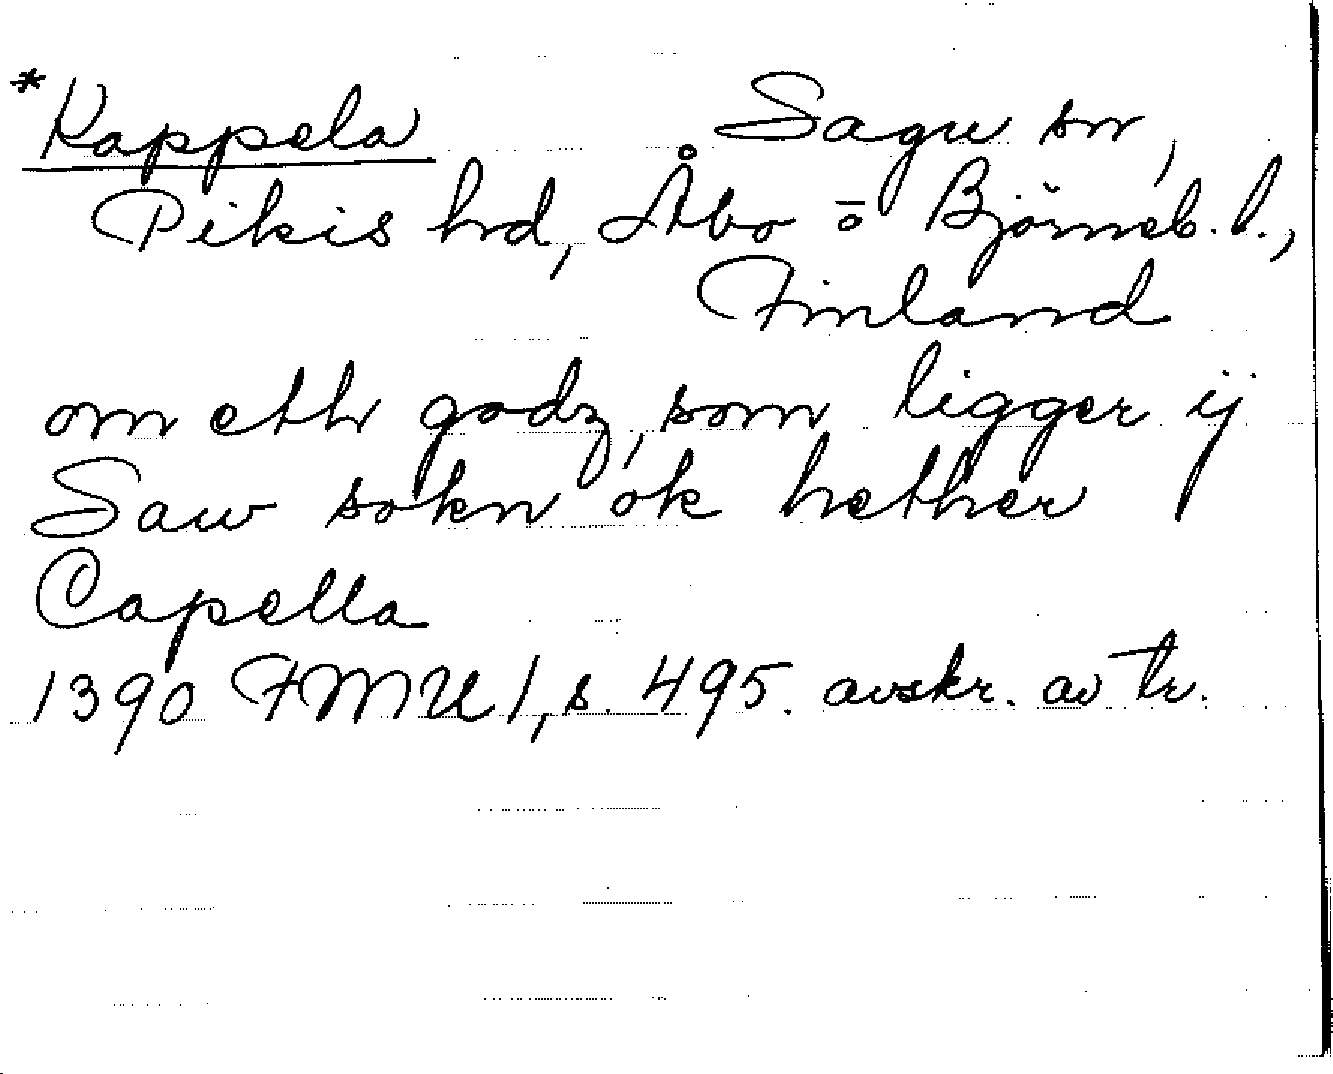 *Kappela Sagu sn,
Pikis hd, Åbo o Björneb. l.,
Finland
om eth godz, som ligger ij
Saw sokn ok hether
Capella
1390 FMU 1, s. 495. avskr. av tr.